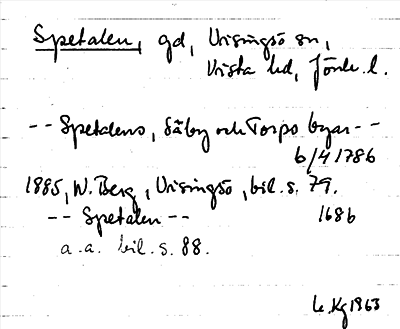 Spetalen, gd, Visingsö sn,
Vista hd, Jönk. l.
-- Spetalens, Säby och Torpo byar --
6/4 1786
1885, W. Berg, Visingsö, bil. s. 79.
-- Spetalen -- 1686
a. a. bil. s. 88.
Kg 1963